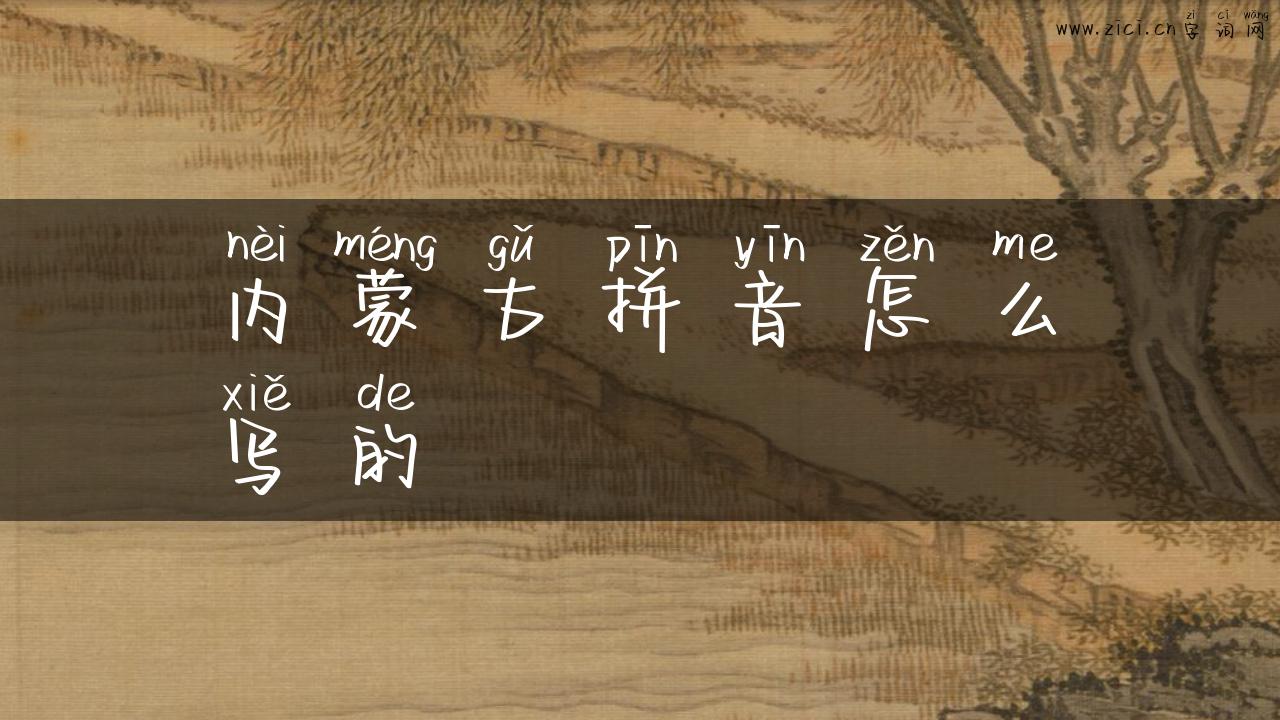 zì cí wǎng
www.zici.cn字词网
nèi méng gǔ pīn yīn zěn me
内蒙古拼音怎么
xiě de
写的